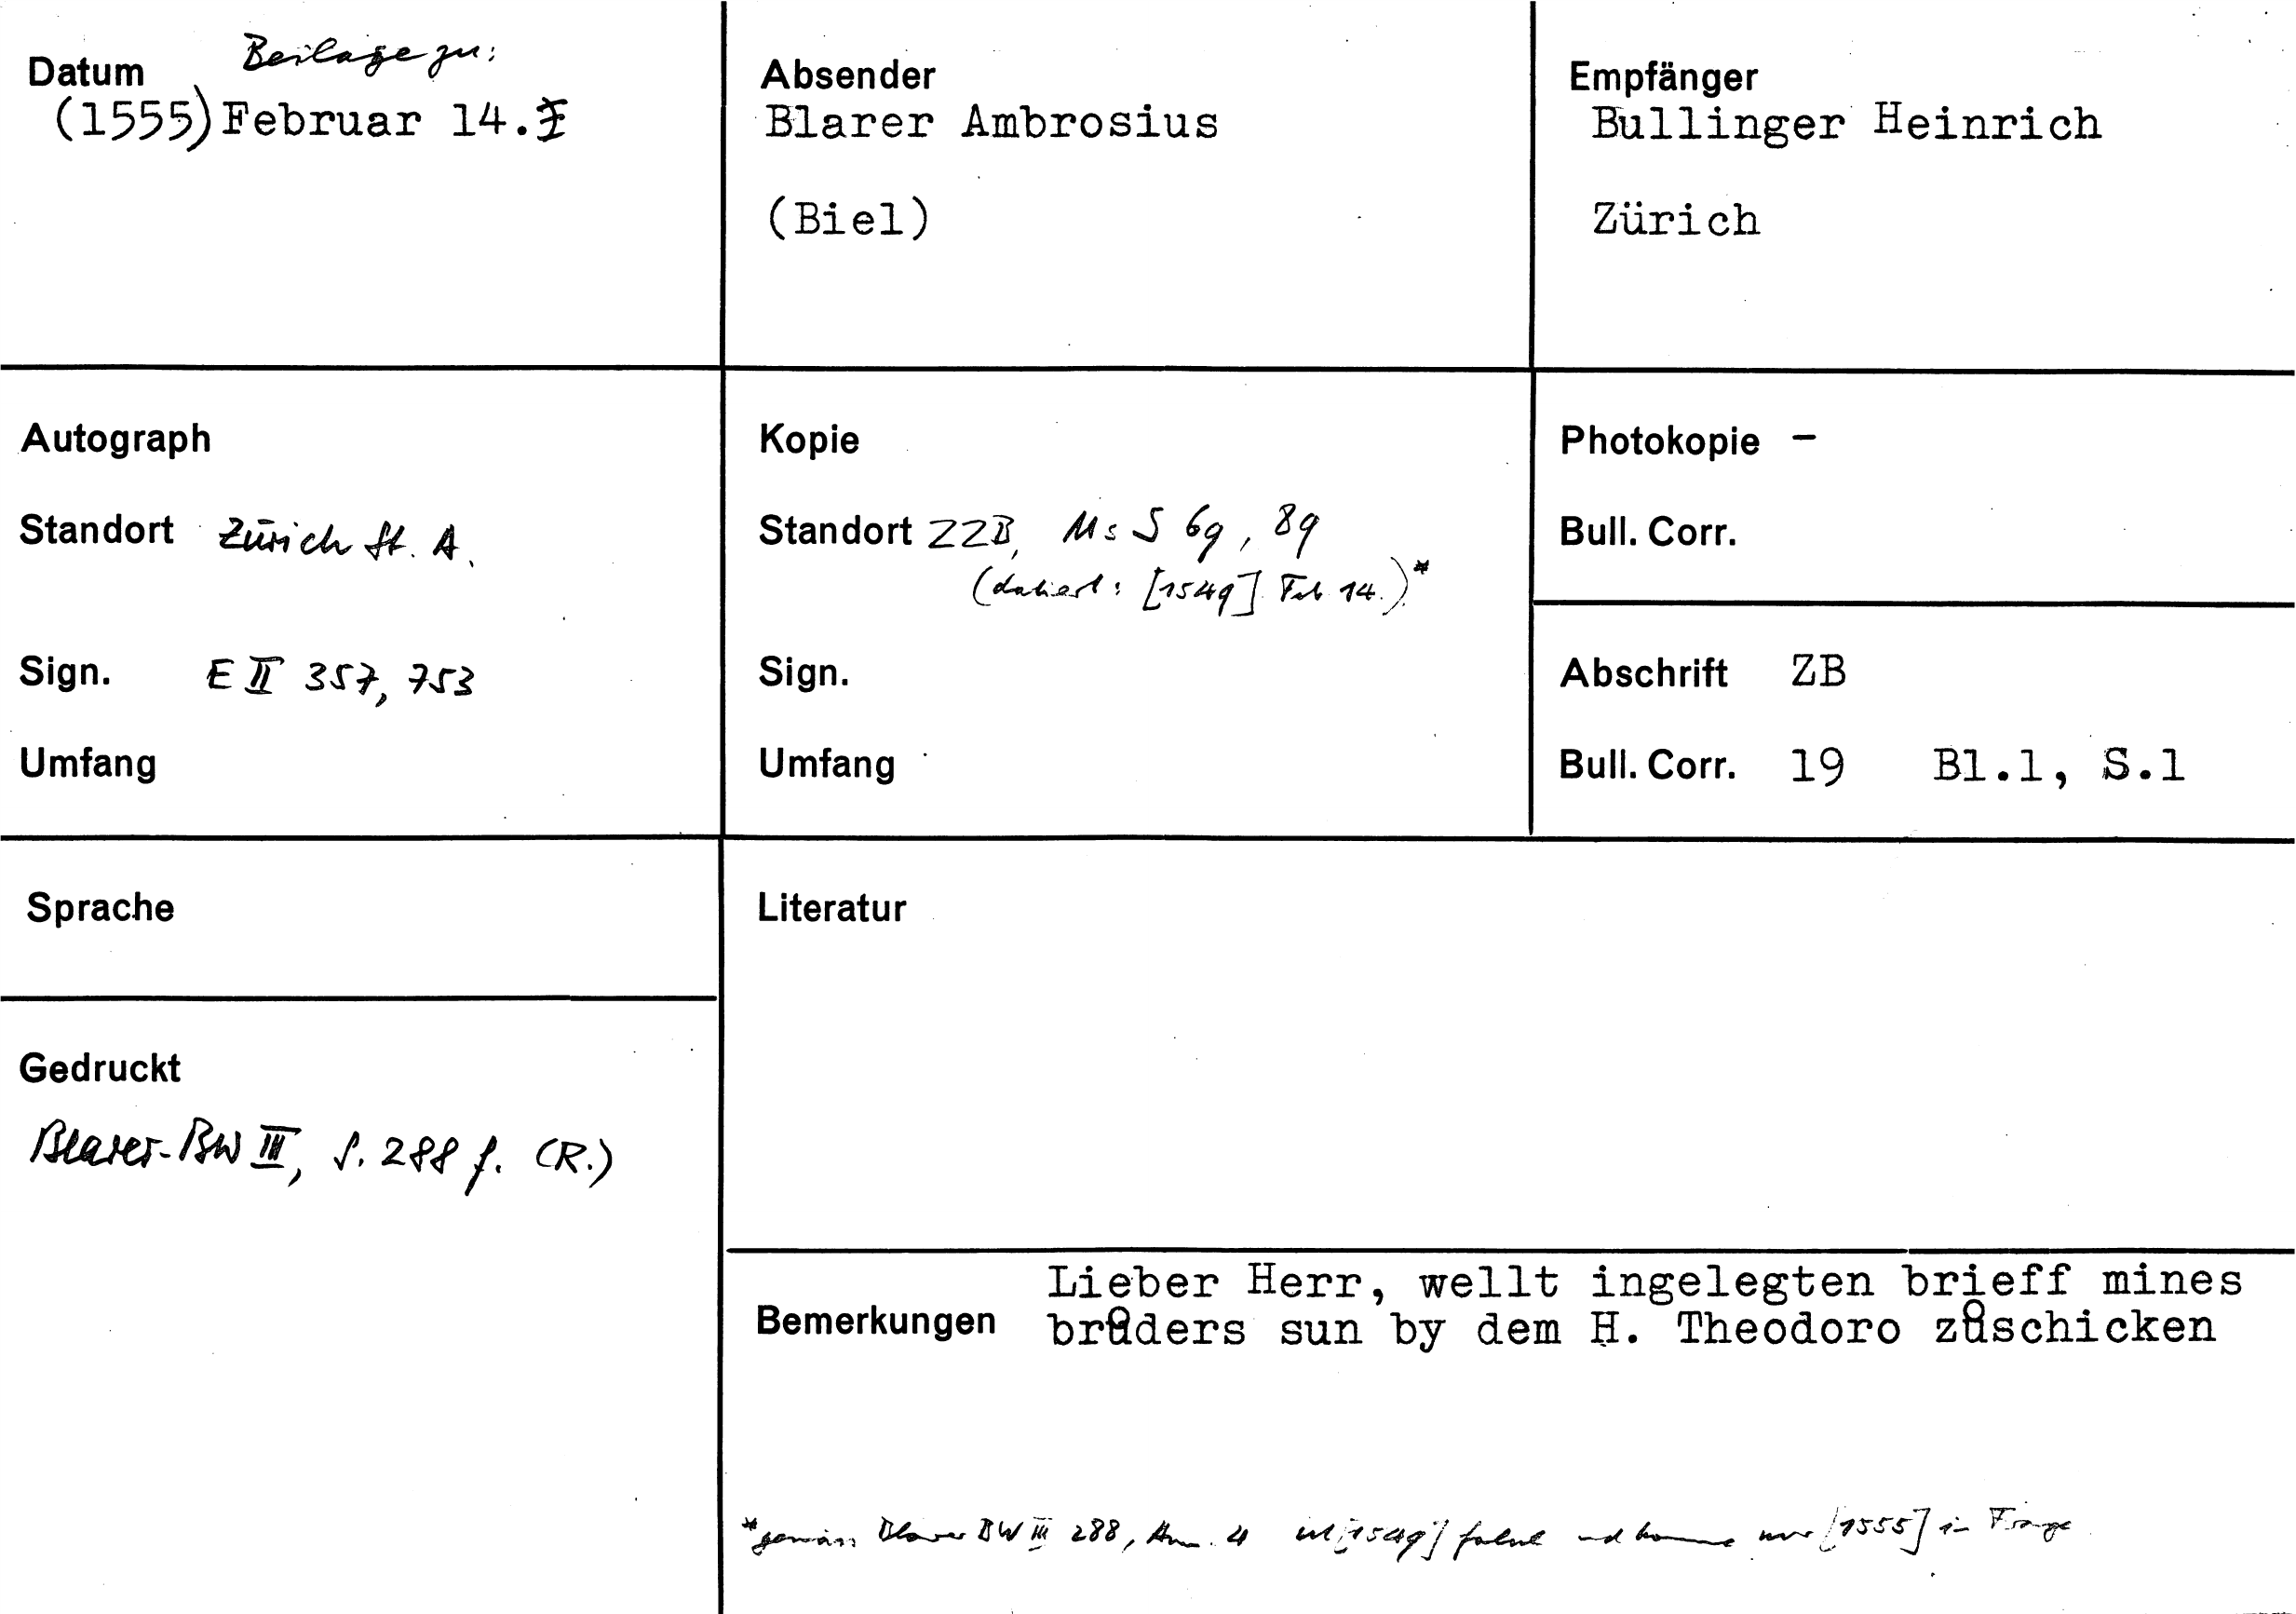 Datum Beilage zu:
(1555) Februar 14. I
Absender
Blarer Ambrosius
(Biel)
Empfänger
Bullinger Heinrich
Zürich
Autograph
Standort Zürich St. A.
Sign. E II 357, 753
Umfang
Kopie
Standort ZZB, Ms S 69, 89
(datiert: [1549] Feb 14.)*
Sign.
Umfang
Photokopie -
Bull. Corr.
Abschrift ZB
Bull. Corr. 19 Bl.1, S.1
Sprache
Gedruckt
Blarer-BW III, S. 288 f. (R.)
Literatur
Bemerkungen
Lieber Herr, wellt ingelegten brieff mines
brůders sun by dem H. Theodoro zůschicken
*gemäss Blarer BW III 288, Anm. 4 ist [1549] falsch und komme nur [1555] in Frage